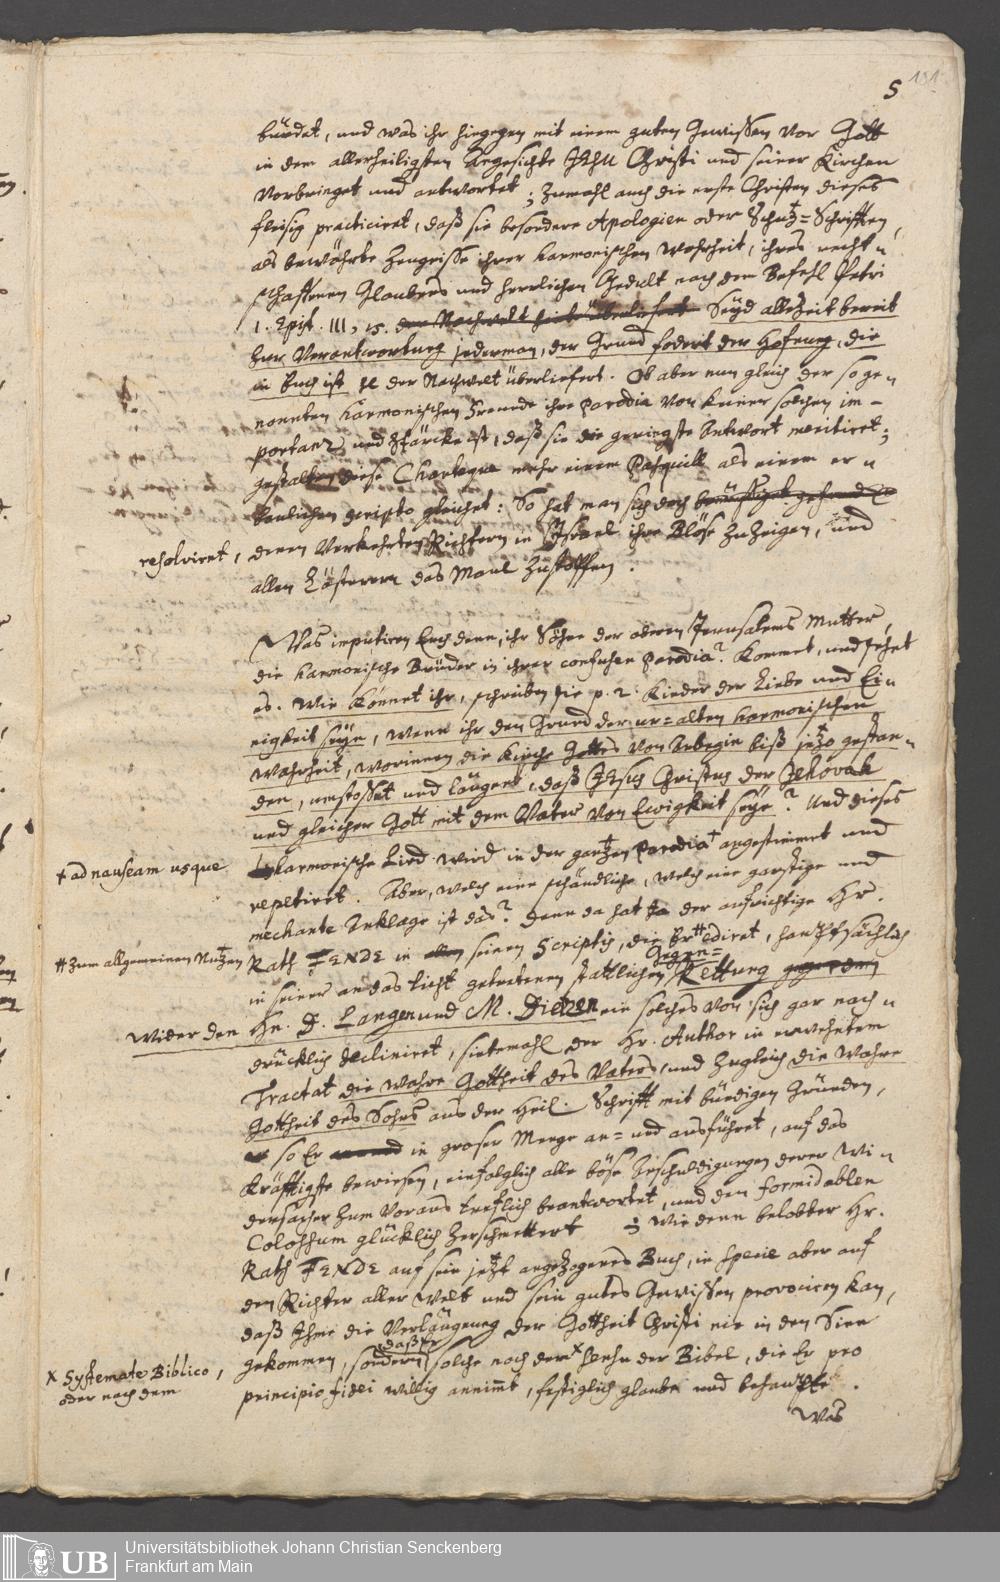 5
191
bürdet, und was ihr hingegen mit einem guten Gewissen vor Gott
in dem allerheiligsten Angesichte JEsu Christi und seiner Kirchen
vorbringet und antwortet; zumahl auch die erste Christen dieses
fleisig practiciret, daß sie besondere Apologien oder Schutz=Schrifften,
als bewährte Zeugnisse ihrer harmonischen Wahrheit, ihres recht=
schaffenen Glaubens und herrlichen Gedult nach dem Befehl Petri
1. Epist. III, 15. der Nachwelt überliefert Seyd allezeit bereit
zur Verantwortung jederman, der Grund fodert der Hofnung, die
in Euch ist der Nachwelt überliefert. Ob aber nun gleich der soge=
nannten harmonischen Freunde ihre Parodia von keiner solchen im=
portanz und Stärcke ist, daß sie die geringste Antwort meritiret;
gestalten diese Charteque mehr einem Pasquill als einem er=
baulichen scripto gleichet: So hat man sich doch
resolviret, denen verkehrten Richtern in Israel ihre Blöse zu zeigen, und
allen Lästerern das Maul zu stopffen.
Was imputiren Euch denn, ihr Söhne der obern Jerusalems Mutter,
die harmonische Brüder in ihrer confusen Parodia? Kommet, und sehet
es. Wie könnet ihr, schreiben sie p. 2. Kinder der Liebe und Ei=
nigkeit seyn, wenn ihr den Grund der ur=alten harmonischen
Wahrheit, worinnen die Kirche Gottes von Anbegin biß jetzo gestan=
den, umstosset und läugnet, daß JEsus Christus der Jehovah
und gleicher Gott mit dem Vater von Ewigkeit seye? Und dieses
harmonische Lied wird in der gantzen Parodia † angestimmet und
† ad nauseam usque
repetiret. Aber, welch eine schändliche, welch eine garstige und
mechante Anklage ist das? Denn da hat ja der aufrichtige Hr.
Rath FENDE in allen seinen Scriptis, die Er # ediret, hauptsächlich
# zum allgemeinen Nutzen
in seiner an das Licht getretenen stattlichen Gegen=Rettung gegen den
wider den Hn. D. Langen und M. Dietzen ein solches von sich gar nach=
drücklich decliniret, sintemahl der Hr. Author in erwehntem
Tractat die wahre Gottheit des Vaters, und zugleich die wahre
Gottheit des Sohns aus der Heil. Schrifft mit bündigen Gründen,
so Er in groser Menge an= und ausführet, auf das
kräfftigste bewiesen, einfolglich alle böse Anschuldigungen derer Wi=
dersacher zum Voraus trefflich beantwortet, und den formidablen
Colossum glücklich zerschmettert; Wie denn belobter Hr.
Rath FENDE auf sein jetzt angezogenes Buch, in specie aber auf
den Richter aller Welt und sein gutes Gewissen provociren kan,
daß Ihme die Verläugnung der Gottheit Christi nie in den Sinn
gekommen, sondern daß Er solche nach dem x Sinn der Bibel, die Er pro
x Systemate Biblico,
oder nach dem
principio fidei willig annimmt, festiglich glaube und behaupte.
Was
UB Universitätsbibliothek Johann Christian Senckenberg
Frankfurt am Main